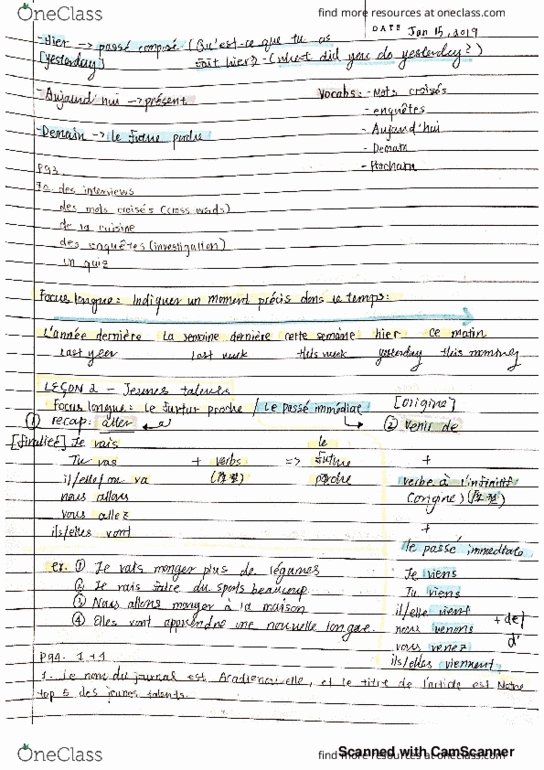 OneClass
find more resources at oneclass.com
DATE Jan 15, 2019
-Hier → passé composé (Qu'est-ce que tu as
[yesterday] fait hier? - (What did you do yesterday?)
-Aujourd'hui → présent
Vocabs: - Mots croisés
- enquêtes
- Aujourd'hui
-Demain → le future proche
- Demain
- Prochain
Pg 3.
des interviews
des mots croisés (cross words)
de la cuisine
des enquêtes (investigation)
un quiz
Focus langue: Indiquer un moment précis dans le temps:
L'année dernière La semaine dernière cette semaine hier ce matin
last year last week this week yesterday this morning
LEÇON 2 - Jeunes talents
Focus langue: le futur proche / Le passé immédiat [origine]
① recap: aller ② venir de
[finalité] Je vais le
Tu vas + verbs => future +
il/elle/on va proche verbe à l'infinitif
nous allons (origine)
vous allez +
ils/elles vont
le passé immediate
ex. ① Je vais manger plus de légumes Je viens
② Je vais faire du sports beaucoup Tu viens
③ Nous allons manger à la maison il/elle vient
④ Elles vont apprendre une nouvelle langue. nous venons + de/
vous venez d'
Pg4. 1+1 ils/elles viennent
1. Le nom du journal est Acadiencielle, et le titre de l'article est Notre
top 5 des jeunes talents.
OneClass
find more resources at oneclass.com
Scanned with CamScanner